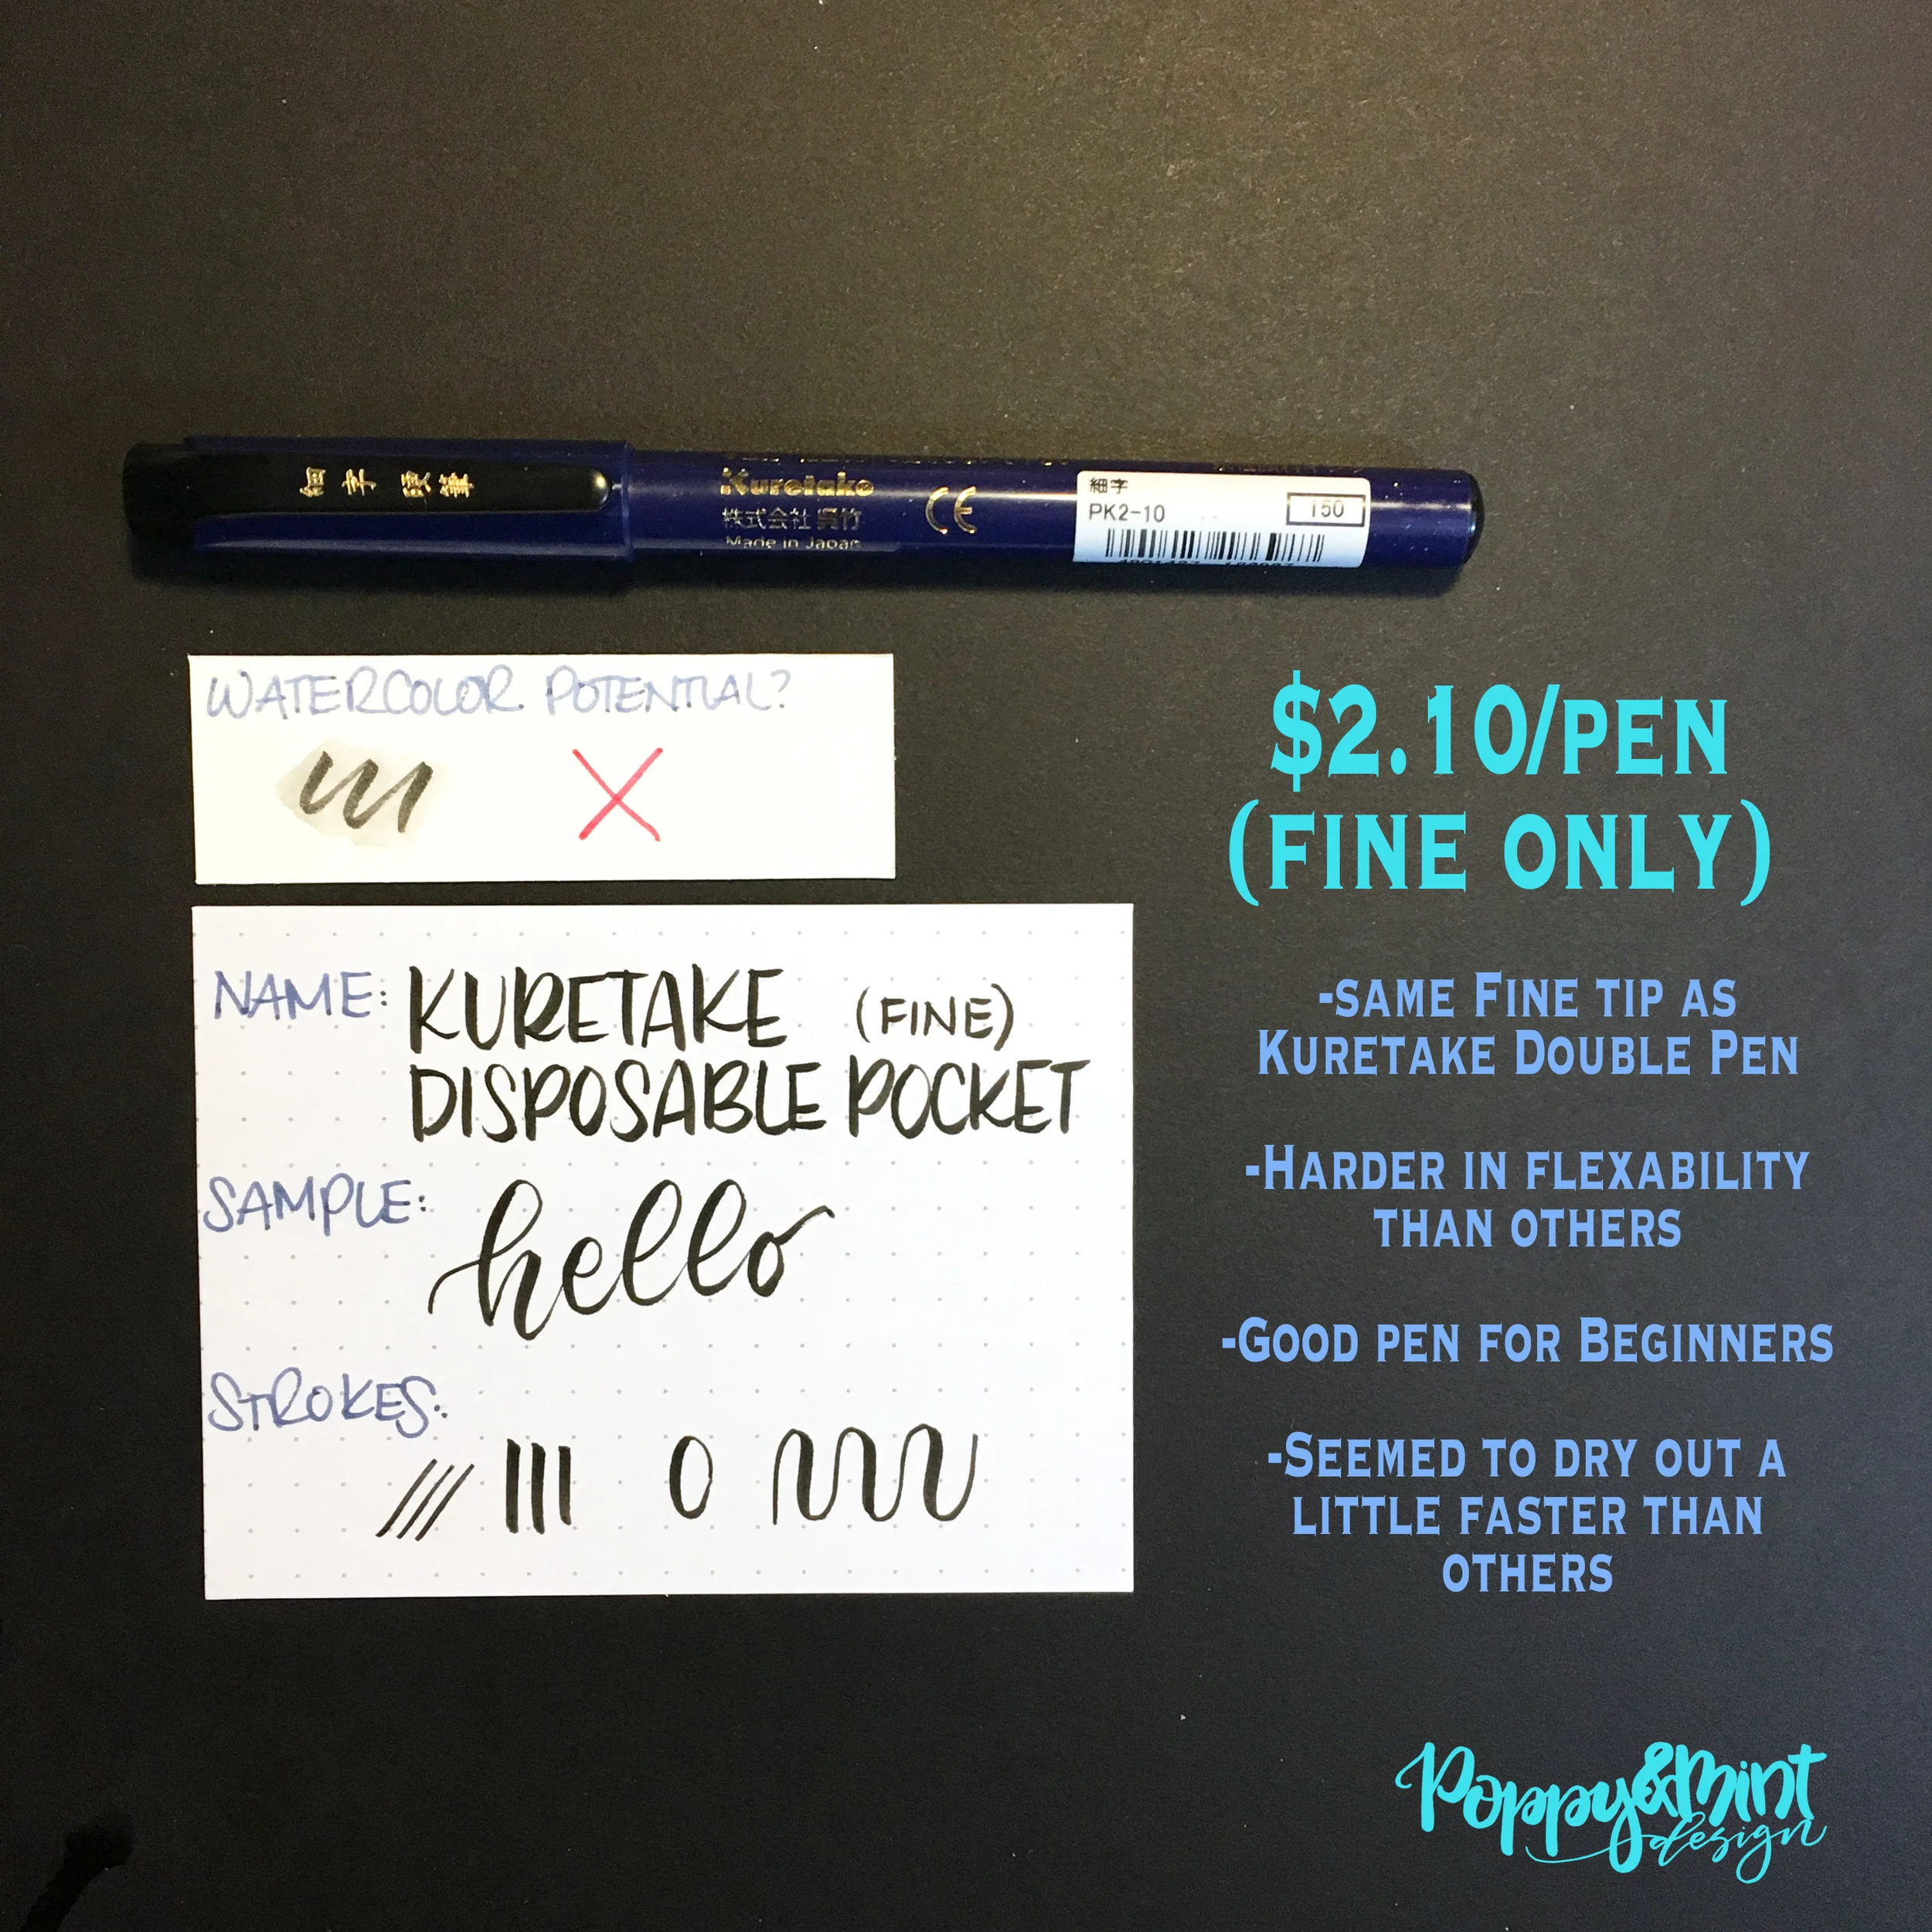 細字 硬筆
Kuretake
株式会社 呉竹
Made in Japan
CE
細字
PK2-10
150
WATERCOLOR POTENTIAL?
$2.10/PEN
(FINE ONLY)
NAME: KURETAKE (FINE)
DISPOSABLE POCKET
SAMPLE: hello
STROKES:
-SAME FINE TIP AS
KURETAKE DOUBLE PEN
-HARDER IN FLEXABILITY
THAN OTHERS
-GOOD PEN FOR BEGINNERS
-SEEMED TO DRY OUT A
LITTLE FASTER THAN
OTHERS
Poppy&Mint
design